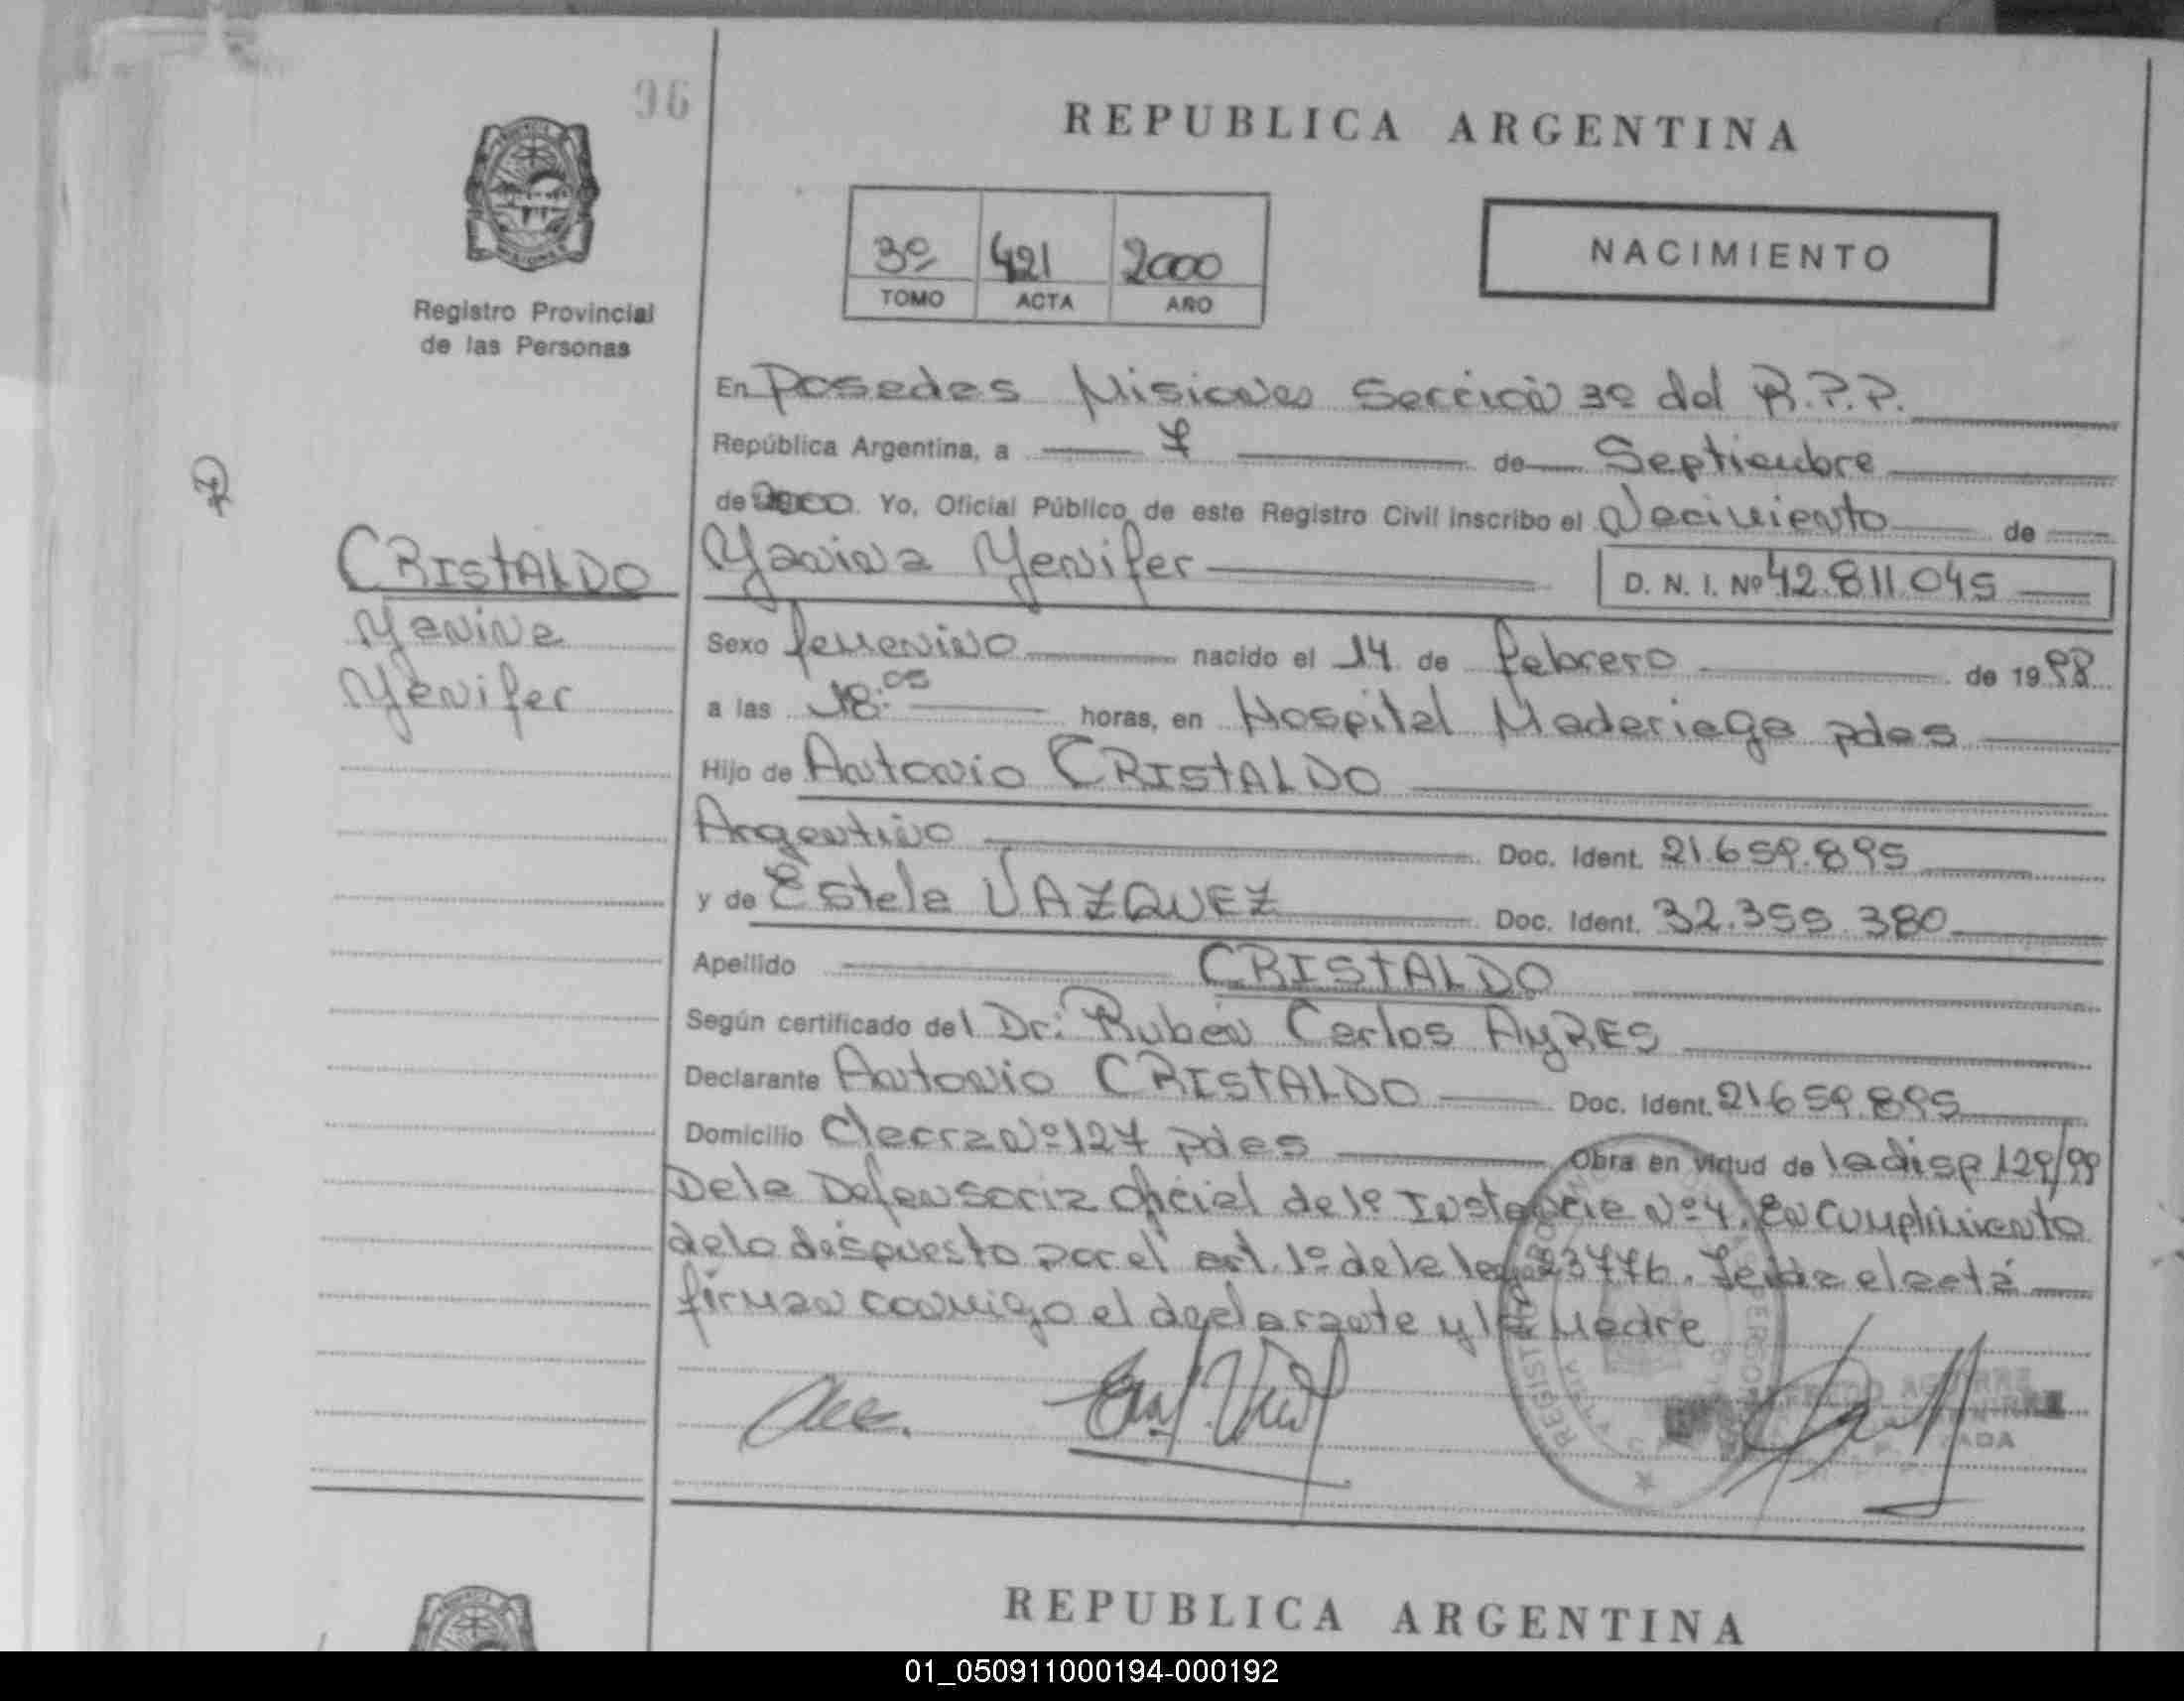 96
REPUBLICA ARGENTINA
Registro Provincial
de las Personas
3º 421 2000
TOMO ACTA AÑO
NACIMIENTO
En Posadas Misiones Sección 3º del R.P.P.
República Argentina, a 7 de Septiembre
de 2000 Yo, Oficial Público de este Registro Civil inscribo el Nacimiento de
Yanina Yenifer D. N. I. Nº 42.811.045
CRISTALDO
Yanina
Yenifer
Sexo femenino nacido el 14 de febrero de 1998
a las 18:05 horas, en Hospital Madariaga pdas
Hijo de Antonio CRISTALDO
Argentino Doc. Ident. 21.659.895
y de Estela VAZQUEZ Doc. Ident. 32.355.380
Apellido CRISTALDO
Según certificado del Dr: Rubén Carlos AyRES
Declarante Antonio CRISTALDO Doc. Ident. 21659.895
Domicilio Chacra Nº 127 pdas Obra en virtud de la disp 129/99
De la Defensoria Oficial de 1º Instancia Nº 4. En Cumplimiento
de lo dispuesto por el art. 1º de la ley 23776. Leida el acta
firman conmigo el declarante y la Madre
REPUBLICA ARGENTINA
01_050911000194-000192